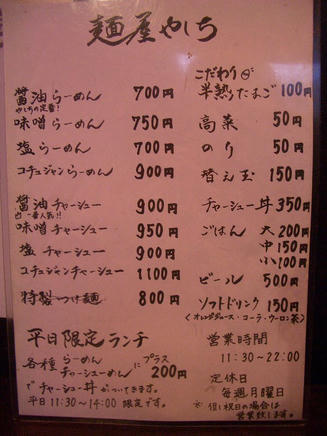 麺屋やしち
醤油らーめん 700円
やしちの定番!
味噌らーめん 750円
塩らーめん 700円
コチュジャンらーめん 900円
醤油チャーシュー 900円
当店一番人気!!
味噌チャーシュー 950円
塩チャーシュー 900円
コチュジャンチャーシュー 1100円
特製つけ麺 800円
平日限定ランチ
各種 らーめん
チャーシューめん に プラス 200円
で チャーシュー丼 がついてきます。
平日 11:30〜14:00 限定です。
こだわりの
半熟たまご 100円
高菜 50円
のり 50円
替え玉 150円
チャーシュー丼 350円
ごはん 大 200円
中 150円
小 100円
ビール 500円
ソフトドリンク 150円
(オレンジジュース・コーラ・ウーロン茶)
営業時間
11:30-22:00
定休日
毎週月曜日
※但し祝日の場合は
営業致します。